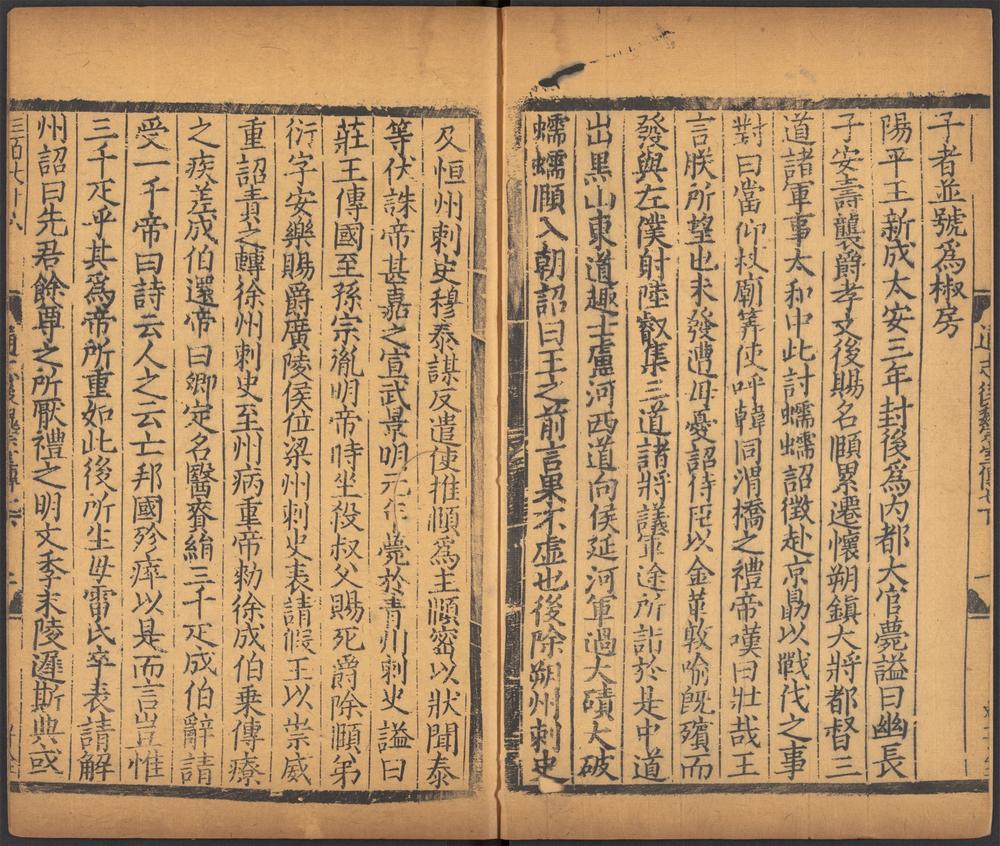 子者並號為椒房
陽平王新成太安三年封後為內都大官薨謚曰幽長
子安壽襲爵孝文後賜名頤累遷懷朔鎮大將都督三
道諸軍事太和中北討蠕蠕詔徵赴京勗以戰伐之事
對曰當仰杖廟筭使呼韓同渭橋之禮帝嘆曰壯哉王
言朕所望也未發遭母憂詔侍臣以金革敦喻既殯而
發與左僕射陸叡集三道諸將議軍途所詣於是中道
出黑山東道趣士盧河西道向侯延河軍過大磧大破
蠕蠕頤入朝詔曰王之前言果不虛也後除朔州刺史
及恒州刺史穆泰謀反遣使推頤為主頤密以狀聞泰
等伏誅帝甚嘉之宣武景明元年薨於青州刺史謚曰
莊王傳國至孫宗胤明帝時坐殺叔父賜死爵除頤弟
衍字安樂賜爵廣陵侯位梁州刺史表請假王以崇威
重詔責之轉徐州刺史至州病重帝勑徐成伯乘傳療
之疾差成伯還帝曰卿定名醫賚絹三千疋成伯辭請
受一千帝曰詩云人之云亡邦國殄瘁以是而言豈惟
三千疋乎其為帝所重如此後所生母雷氏卒表請解
州詔曰先君餘尊之所厭禮之明文季末陵遲斯典或